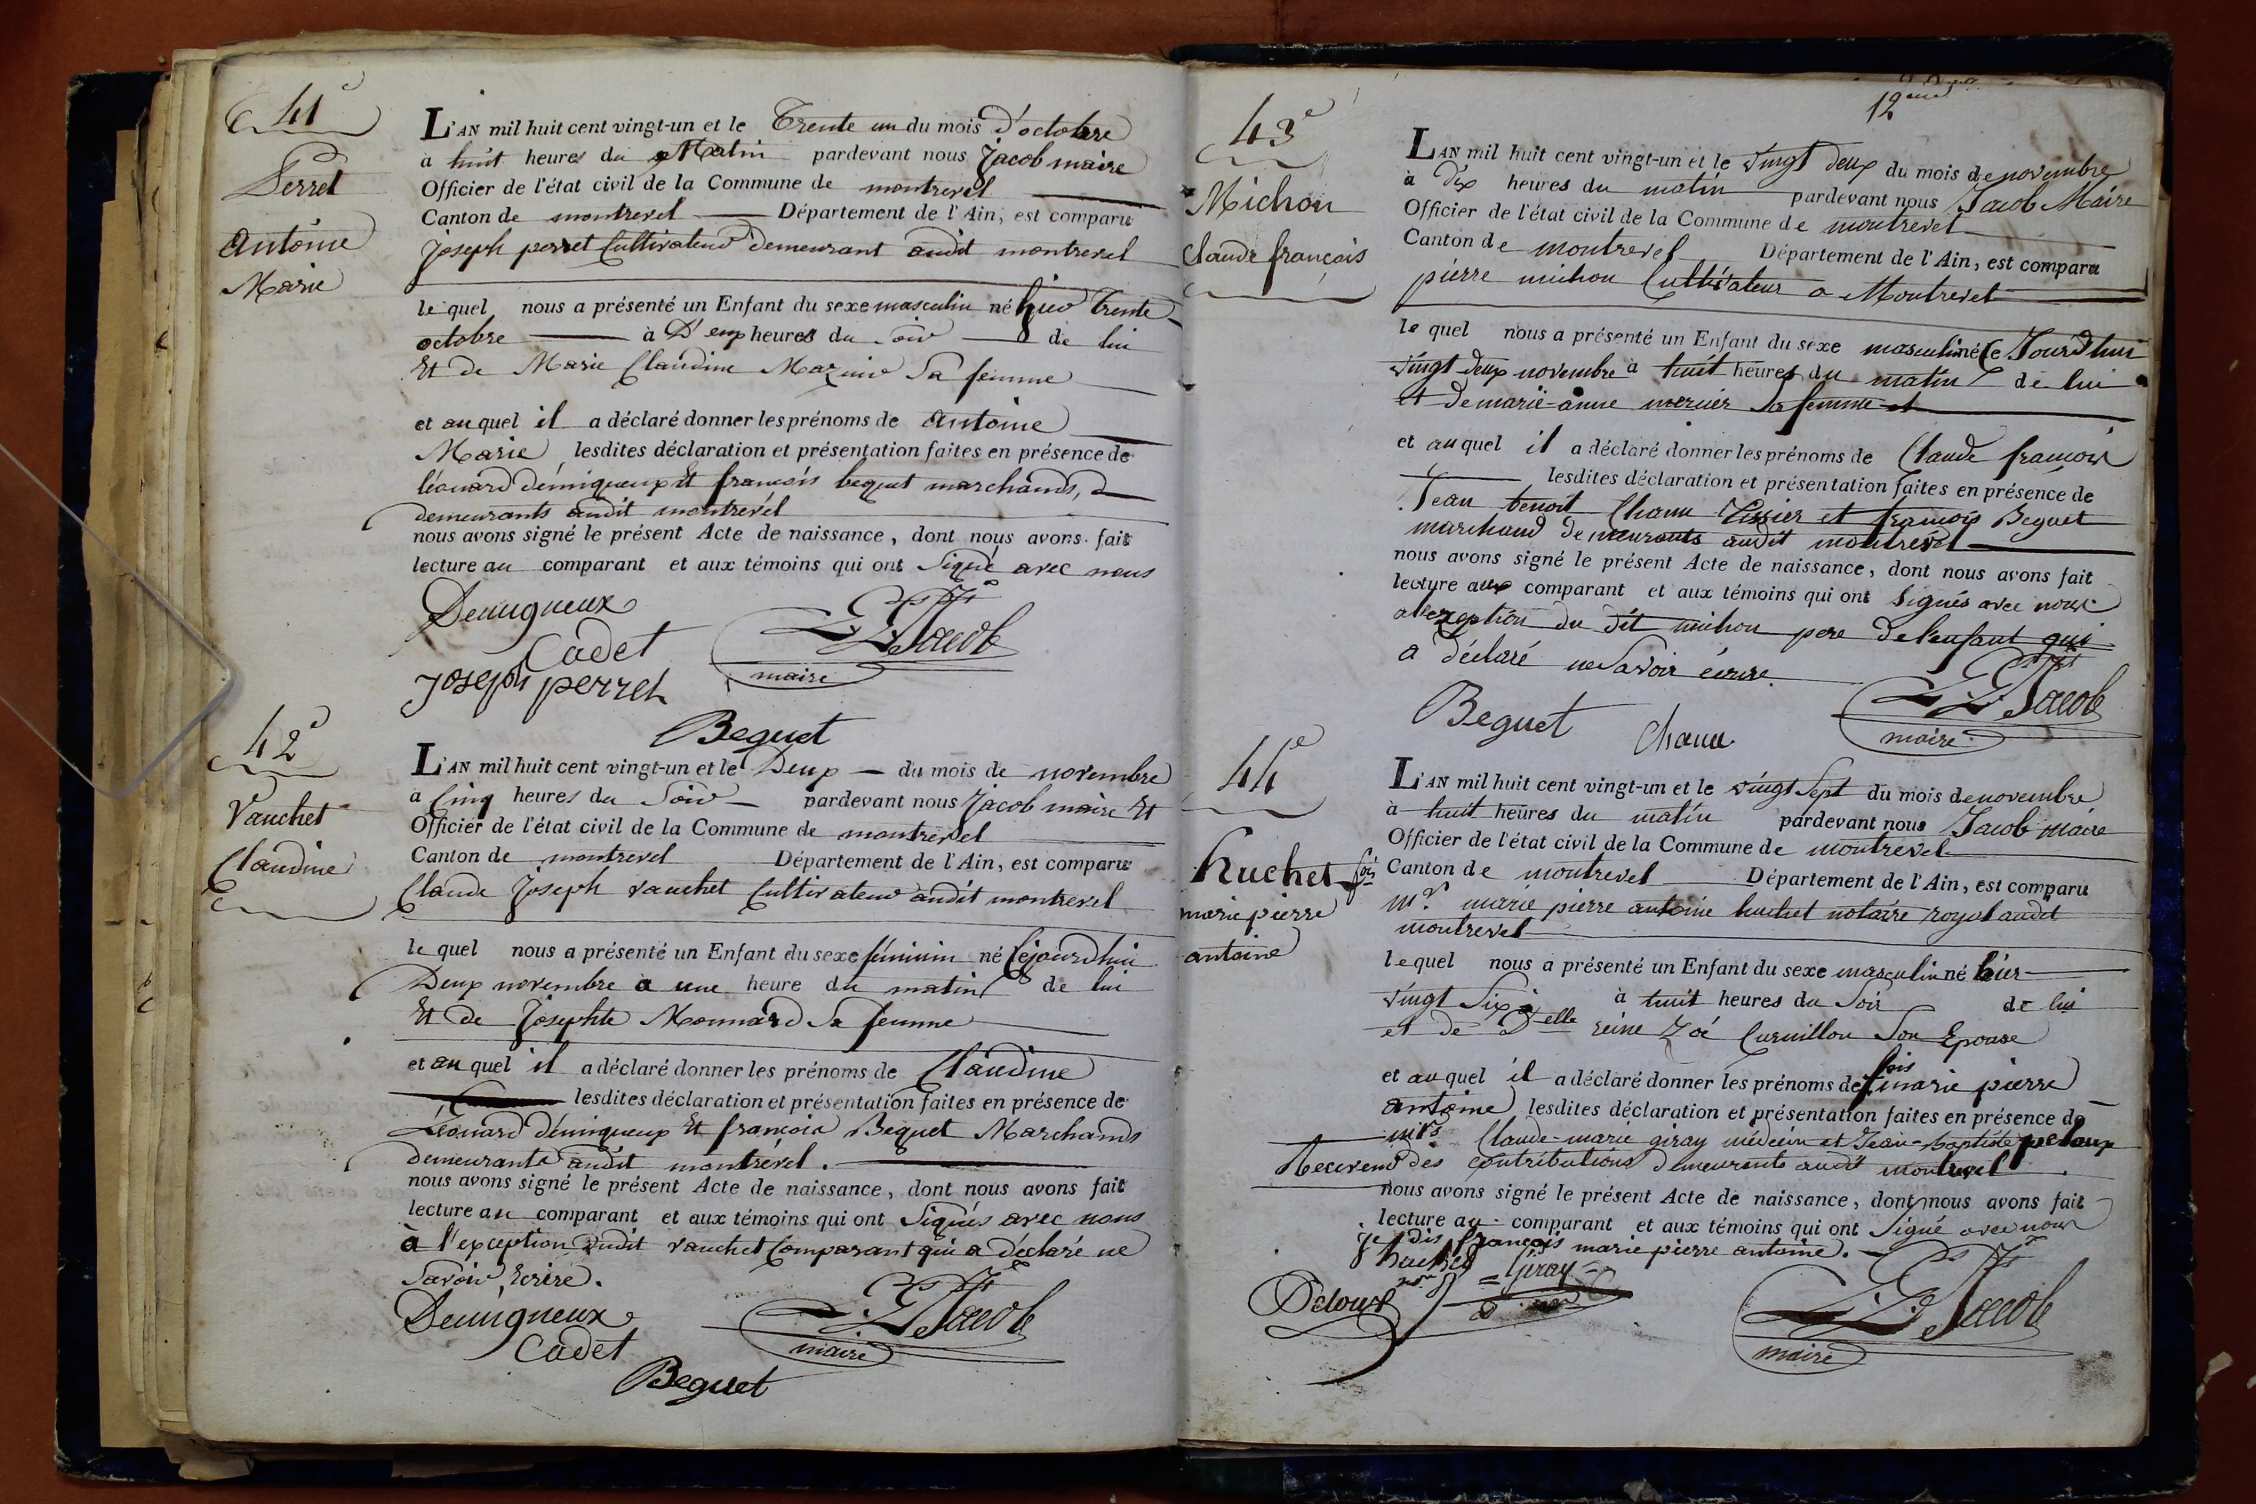 41e
Perret
Antoine
Marie
L'AN mil huit cent vingt-un et le Trente un du mois d'octobre
a huit heures du Matin pardevant nous Jacob maire
Officier de l'état civil de la Commune de montrevel
Canton de montrevel Département de l'Ain, est comparu
Joseph perret Cultivateur demeurant audit montrevel
le quel nous a présenté un Enfant du sexe masculin né hier Trente
octobre à D'eux heures du soir de lui
Et de Marie Claudine Mazuir Sa femme
et au quel il a déclaré donner les prénoms de Antoine
Marie lesdites déclaration et présentation faites en présence de
léonard démiqueux Et francois bequet marchands, d
demeurants audit montrével
nous avons signé le présent Acte de naissance, dont nous avons fait
lecture au comparant et aux témoins qui ont Signé avec nous
Demigneux
Cadet
Jacob
maire
Joseph perret
Beguet
42e
Vauchet
Claudine
L'AN mil huit cent vingt-un et le Deux du mois de novembre
a Cinq heures du Soir pardevant nous Jacob maire Et
Officier de l'état civil de la Commune de montrevel
Canton de montrevel Département de l'Ain, est comparu
Claude Joseph vauchet Cultivateur audit montrevel
le quel nous a présenté un Enfant du sexe féminin né Cejourdhui
Deux novembre a une heure du matin de lui
Et de Josephte Monnard Sa femme
et au quel il a déclaré donner les prénoms de Claudine
lesdites déclaration et présentation faites en présence de
Léonard démiqueux Et francois Bequet Marchands
demeurants audit montrével.
nous avons signé le présent Acte de naissance, dont nous avons fait
lecture au comparant et aux témoins qui ont Signés avec nous
à l'exception dudit vauchet Comparant qui a déclaré ne
Savoir Ecrire.
Demigneux
Cadet
Jacob
maire
Beguet
12eme
43e
Michon
Claude françois
L'AN mil huit cent vingt-un et le vingt deux du mois de novembre
à dix heures du matin pardevant nous Jacob Maire
Officier de l'état civil de la Commune de montrevel
Canton de montrevel Département de l'Ain, est comparu
pierre michon Cultivateur a Montrevel
le quel nous a présenté un Enfant du sexe masculin né Ce Jourd'hui
vingt deux novembre à huit heures du matin de lui
et de marie-anne mercier Sa femme et
et au quel il a déclaré donner les prénoms de Claude francois
lesdites déclaration et présentation faites en présence de
Jean benoit Chanu Tissier et francois Beguet
marchand demeurants audit montrevel
nous avons signé le présent Acte de naissance, dont nous avons fait
lecture aux comparant et aux témoins qui ont Signés avec nous
a l'exception du dit michon pere de l'enfant qui
a déclaré ne Savoir écrire
Beguet Chanu
Jacob
maire
44e
huchet fois
marie pierre
antoine
L'AN mil huit cent vingt-un et le vingt Sept du mois de novembre
à huit heures du matin pardevant nous Jacob Maire
Officier de l'état civil de la Commune de montrevel
Canton de montrevel Département de l'Ain, est comparu
mr. marie pierre antoine huchet notaire royal audit
montrevel
le quel nous a présenté un Enfant du sexe masculin né hier
vingt Six à huit heures du Soir de lui
et de Delle reine Zoé Curnillon Son Epouse
et au quel il a déclaré donner les prénoms de fois marie pierre
antoine lesdites déclaration et présentation faites en présence de
mrs Claude-marie giray médecin et Jean-baptiste peloux
Receveur des Contributions demeurents audit montrevel.
nous avons signé le présent Acte de naissance, dont nous avons fait
lecture au comparant et aux témoins qui ont Signé avec nous
je dis françois marie pierre antoine.
huchet
Giray
Jacob
maire